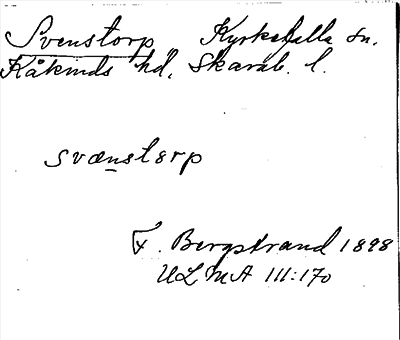 Svenstorp Kyrkefalla sn.
Kåkinds hd, Skarab. l.
svænstɘrp
F. Bergstrand 1898
ULMA 111:170